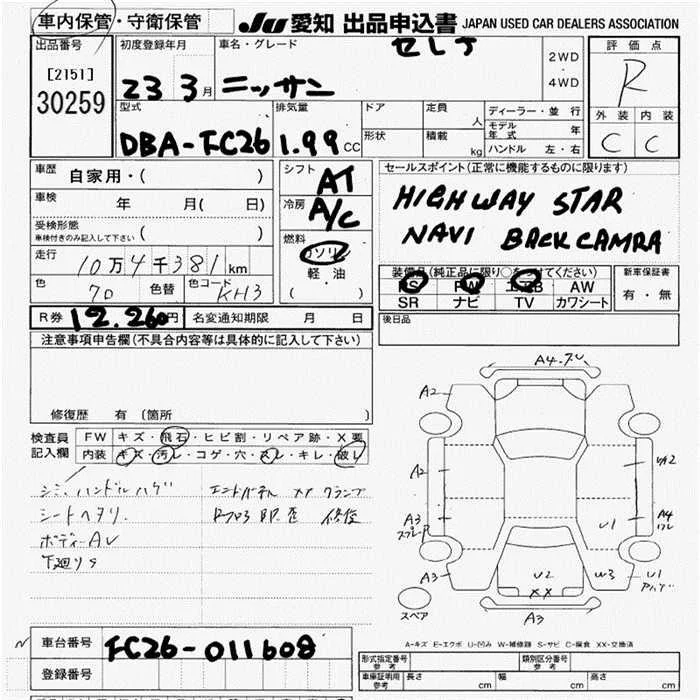 車内保管・守衛保管 JU 愛知 出品申込書 JAPAN USED CAR DEALERS ASSOCIATION
出品番号 初度登録年月 車名・グレード セレナ 2WD ・ 4WD 評価点
[2151]
30259 23 3月 ニッサン R
型式 排気量 ドア 定員 人 ディーラー・並行 外装 内装
DBA-FC26 1.99 CC 形状 積載 kg モデル年式 年 C C
ハンドル 左・右
車歴 自家用・( ) シフト AT セールスポイント(正常に機能するものに限ります)
車検 年 月( 日) 冷房 A/C HIGHWAY STAR
受検形態 NAVI BACK CAMRA
車検付きのみ記入して下さい ( )
走行 10万4千381km 燃料 ガソリン 装備品(純正品に限り○をつけてください) 新車保証書
色 70 色替 色コード KH3 軽油 PS PW エアB AW 有・無
( ) SR ナビ TV カワシート
R券 12.260円 名変通知期限 月 日 後日品
注意事項申告欄(不具合内容等は具体的に記入して下さい)
修復歴 有 (箇所 )
検査員 FW キズ・飛石・ヒビ割・リペア跡・X要
記入欄 内装 キズ・汚レ・コゲ・穴・スレ・キレ・破レ
シミ、ハンドルハゲ エンドパネル XX クランプ
シートヘタリ.
ボディーAU
下廻りS
A4.
A2
A2 UA2
A3 U1 A4
A3 U2 W3 U1
XX
スペア A3
A-キズ E-エクボ U-凹み W-補修跡 S-サビ C-腐食 XX-交換済
車台番号 FC26-011608 形式指定番号 参考 類別区分番号 参考
登録番号 車庫証明用 参考 長さ cm 幅 cm 高さ cm